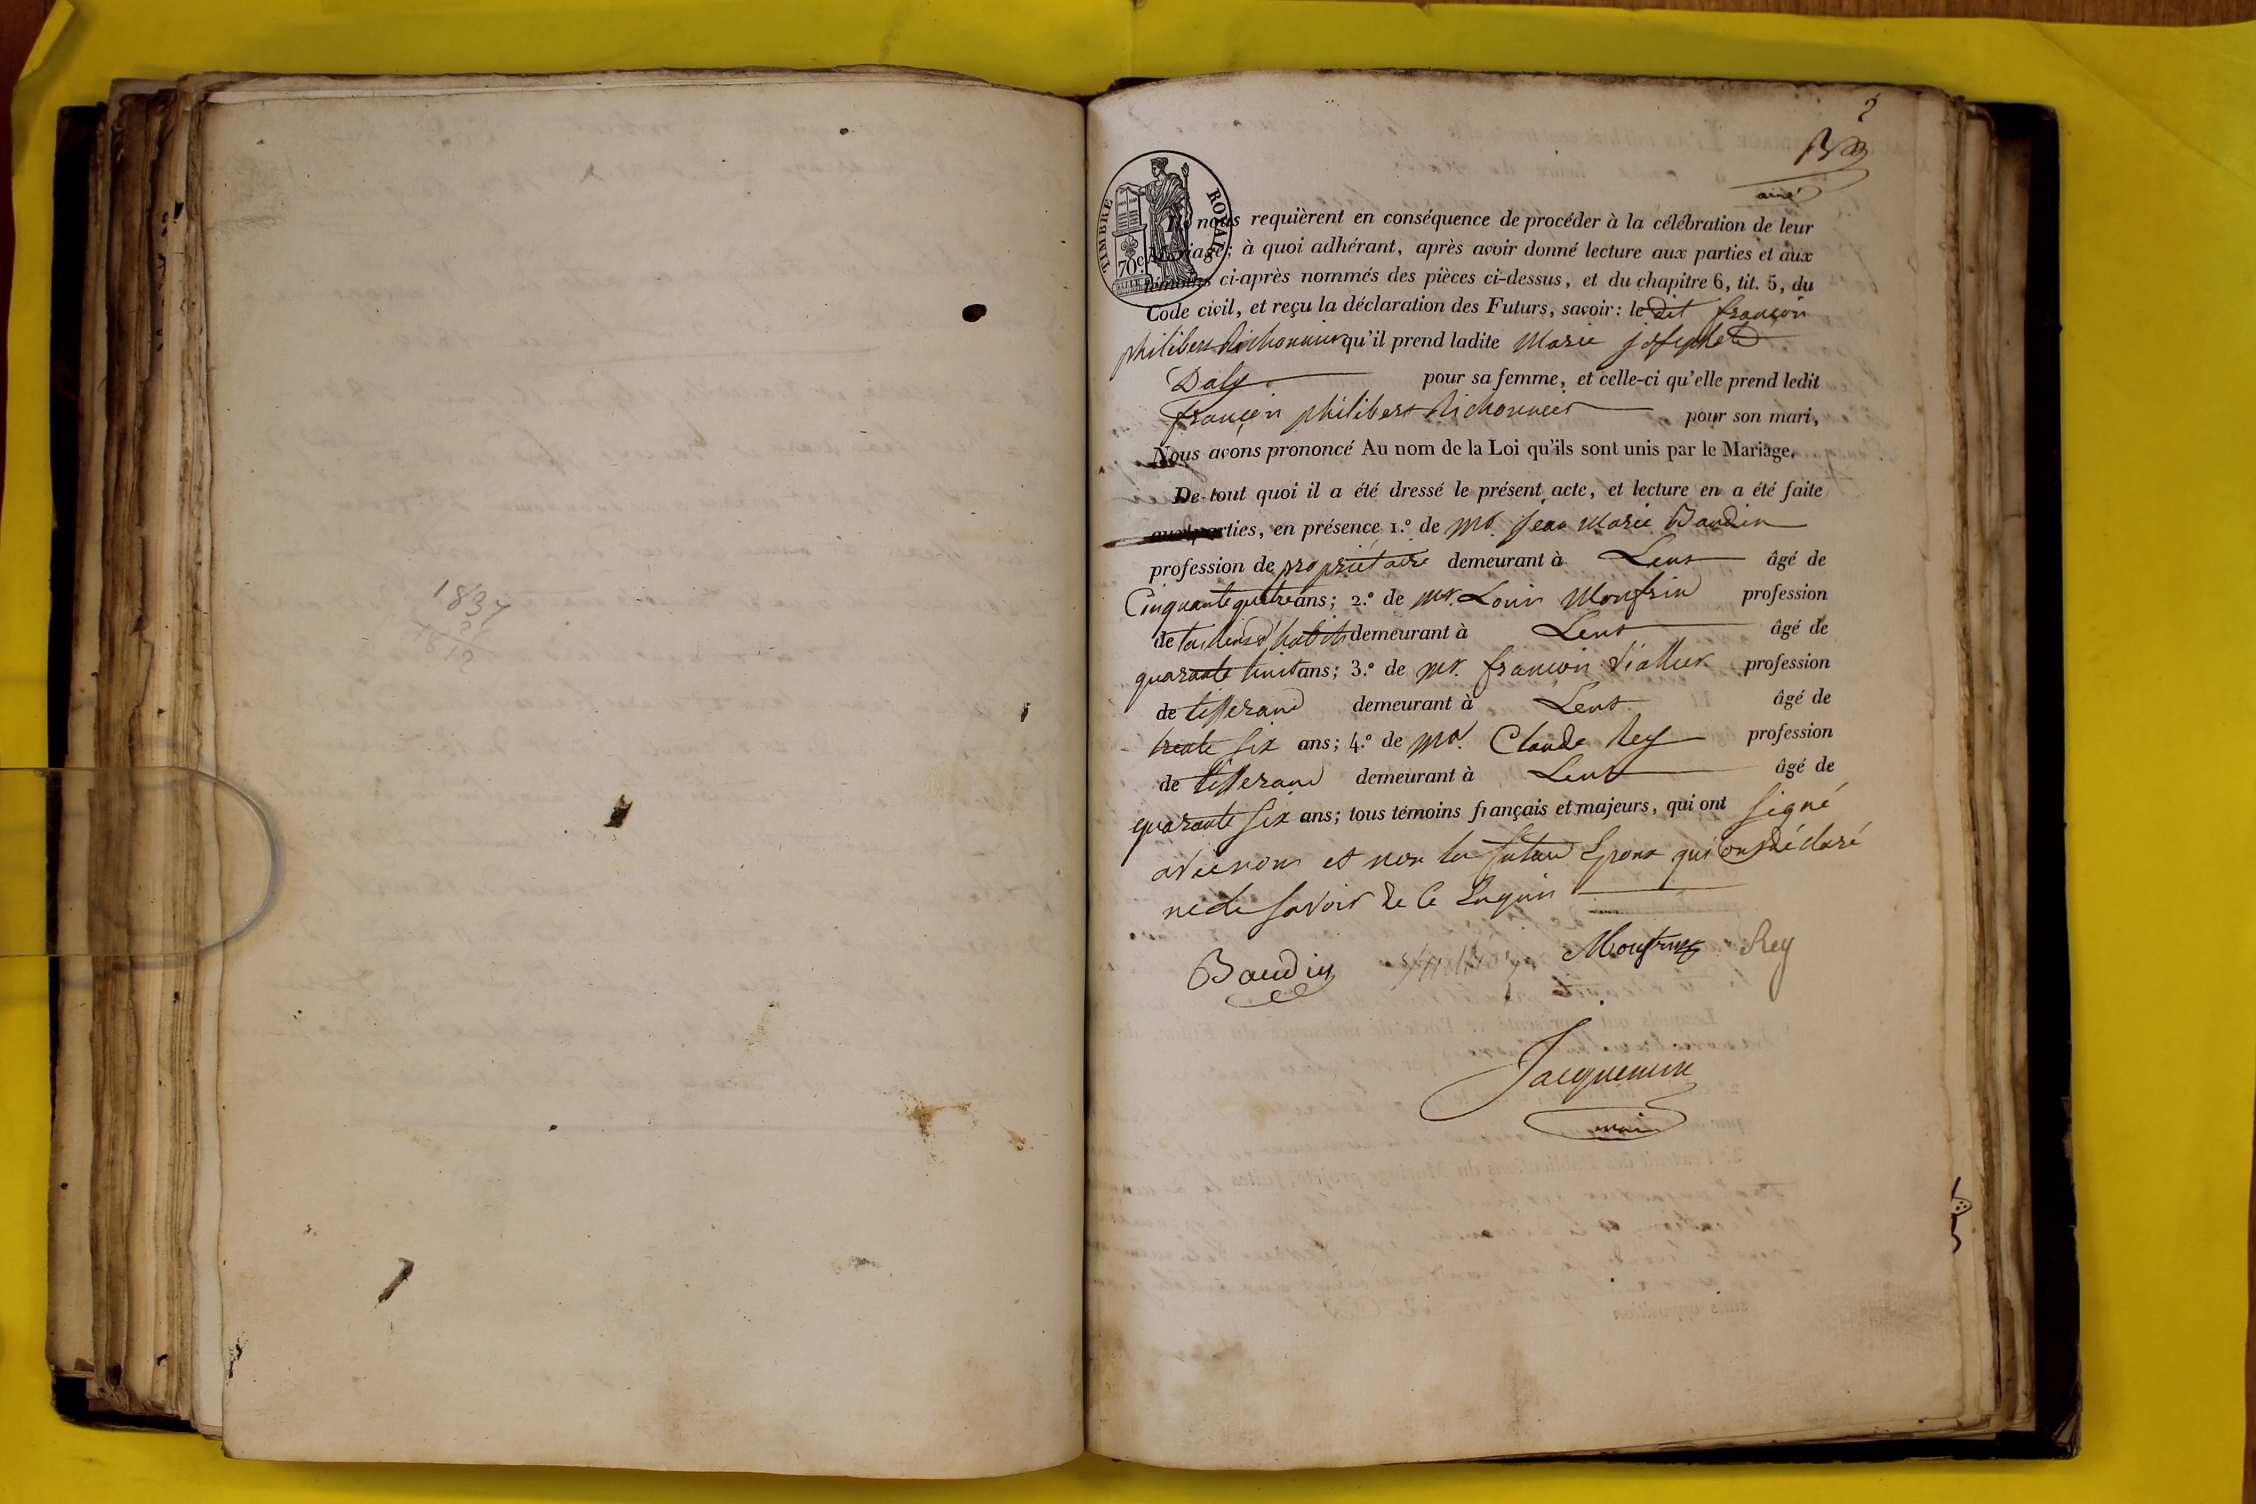 1837
2
B
ainé
TIMBRE ROYAL
70 c.
Ils nous requièrent en conséquence de procéder à la célébration de leur
Mariage; à quoi adhérant, après avoir donné lecture aux parties et aux
témoins ci-après nommés des pièces ci-dessus, et du chapitre 6, tit. 5, du
Code civil, et reçu la déclaration des Futurs, savoir: le dit françois
philibert Richonnier qu'il prend ladite Marie josephete
Daly pour sa femme, et celle-ci qu'elle prend ledit
françois philibert Richonnier pour son mari,
Nous avons prononcé Au nom de la Loi qu'ils sont unis par le Mariage.
De tout quoi il a été dressé le présent acte, et lecture en a été faite
aux parties, en présence 1.º de Mr. jean Marie Baudin
profession de propriétaire demeurant à Lent âgé de
Cinquante quatre ans; 2.º de Mr. Louis Monfrin profession
de tailleur d'habits demeurant à Lent âgé de
quarante huit ans; 3.º de Mr. françois Viallier profession
de tisserand demeurant à Lent âgé de
trente six ans; 4.º de Mr. Claude Rey profession
de tisserand demeurant à Lent âgé de
quarante six ans; tous témoins français et majeurs, qui ont signé
avec nous et non les futurs Epoux qui ont déclaré
ne le savoir de ce Enquis
Baudin Monfrin Rey
Jacquemin
maire